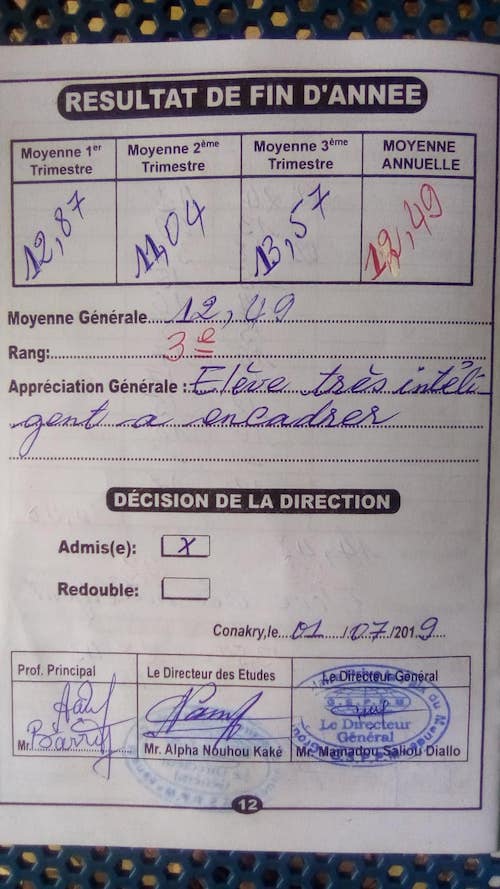 RESULTAT DE FIN D'ANNEE
Moyenne 1er Trimestre
Moyenne 2ème Trimestre
Moyenne 3ème Trimestre
MOYENNE ANNUELLE
12,87
11,04
13,57
12,49
Moyenne Générale 12,49
Rang: 3e
Appréciation Générale : Elève très intéli-
gent a encadrer
DÉCISION DE LA DIRECTION
Admis(e): X
Redouble:
Conakry,le 01/07/2019
Prof. Principal
Le Directeur des Etudes
Le Directeur Général
Le Directeur
Général
Mr. Barry
Mr. Alpha Nouhou Kaké
Mr. Mamadou Saliou Diallo
12